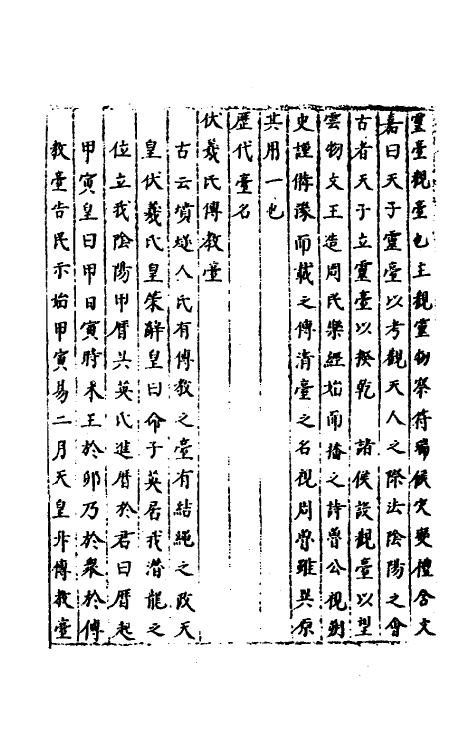 靈臺觀臺也主觀靈物察符瑞候灾變禮含文
嘉曰天子靈臺以考觀天人之際法陰陽之會
古者天子立靈臺以揆乾　諸侯設觀臺以望
雲物文王造周民樂經始而播之詩魯公視朔
史謹備豫而載之傳清臺之名視周魯雖異原
其用一也
歷代臺名
伏羲氏傳教臺
古云燧人氏有傳教之臺有結繩之政天
皇伏羲氏皇策辭皇曰命子英居我潛龍之
位立我陰陽甲曆共英氏進曆於君曰曆起
甲寅皇曰甲日寅時來王於卯乃於衆於傳
教臺告民示始甲寅易二月天皇升傳教臺